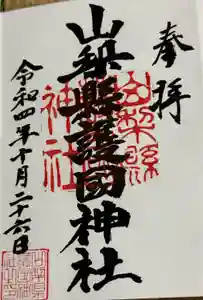 奉拝
山梨縣護国神社
山梨縣
神社
令和四年十月二十六日